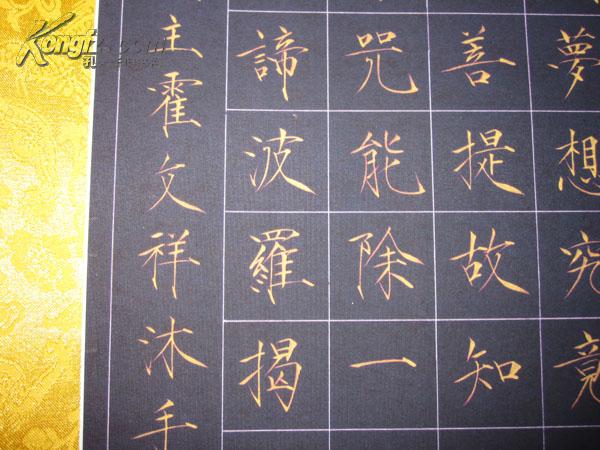 夢想究竟
善提故知
咒能除一
諦波羅揭
主霍文祥沐手
Kongfz.com